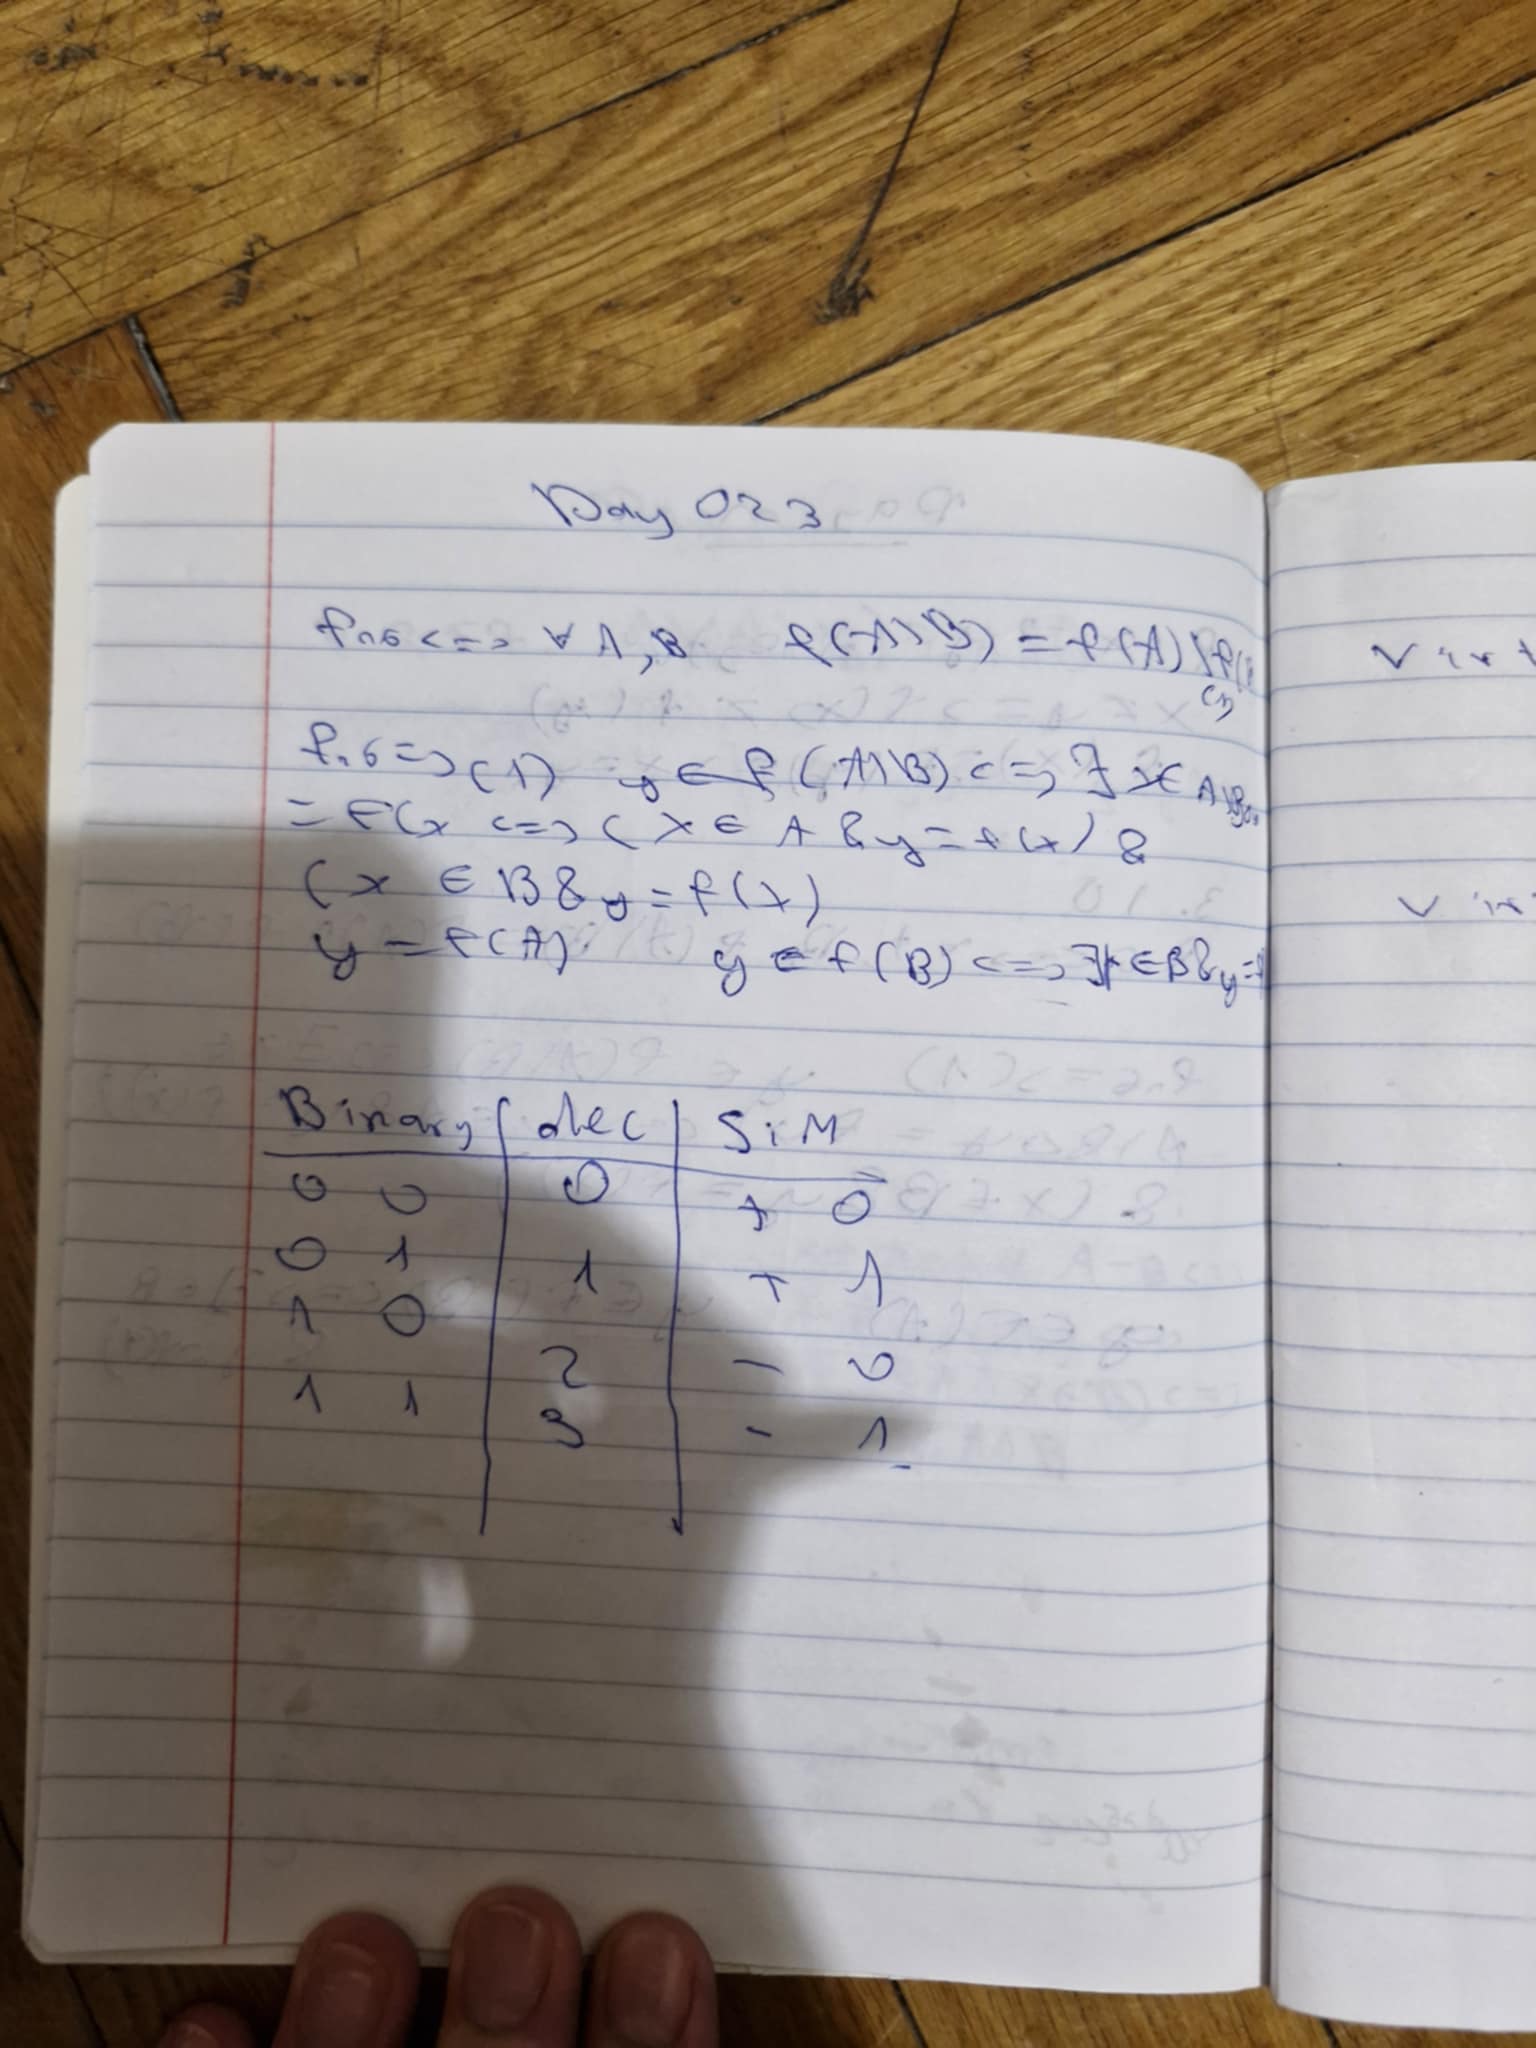 Day 023
f n6 <=> ∀ A, B f(A\B) = f(A)\f(
(1)
f.n6 => (1) y ∈ f(A\B) <=> ∃ x ∈ A\B
= f(x <=> (x ∈ A & y = f(x) &
(x ∈ B & y = f(x)
y = f(A) y ∈ f(B) <=> ∃x ∈ B & y =
Binary | dec | SiM
0 0 | 0 | + 0
0 1 | 1 | + 1
1 0 | 2 | - 0
1 1 | 3 | - 1